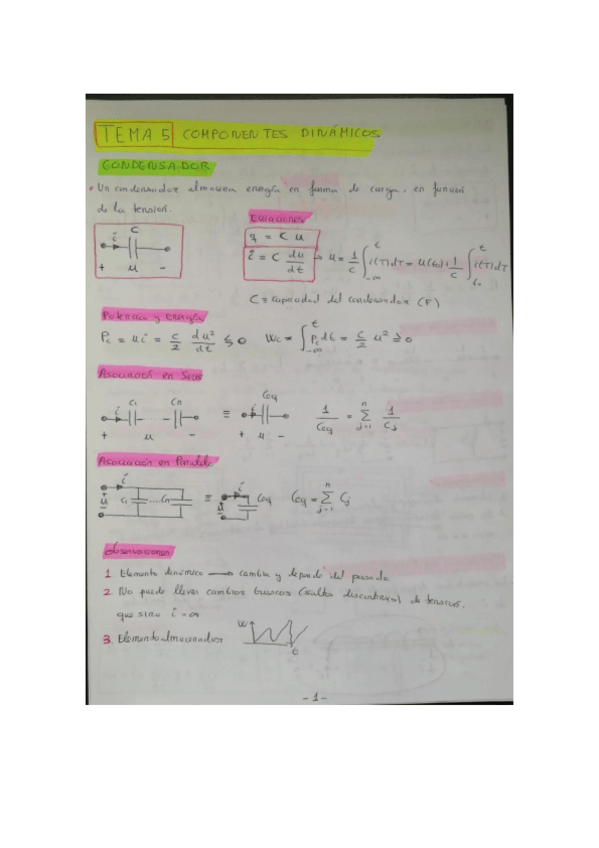 TEMA 5 COMPONENTES DINÁMICOS.
CONDENSADOR
• Un condensador almacena energía en forma de carga, en función
de la tensión.
Ecuaciones
C
i
+ u -
q = C u
i = C du/dt → u = 1/C ∫_{-∞}^{t} i(T)dT = u(t₀) + 1/C ∫_{t₀}^{t} i(T)dT
C ≡ capacidad del condensador (F)
Potencia y Energía
Pc = u i = C/2 du²/dt ≶ 0 Wc = ∫_{-∞}^{t} Pc dt = C/2 u² ≥ 0
Asociación en Serie
i C₁ Cn ≡ i Ceq 1/Ceq = ∑_{j=1}^{n} 1/Cj
+ u - + u -
Asociación en Paralelo
i + u - C₁ ....Cn ≡ i u Ceq Ceq = ∑_{j=1}^{n} Cj
Observaciones
1. Elemento dinámico → cambia y depende del pasado
2. No puede llevar cambios bruscos (salto discontinuo) de tensión,
que sino i = ∞
3. Elemento almacenador W t
- 1 -